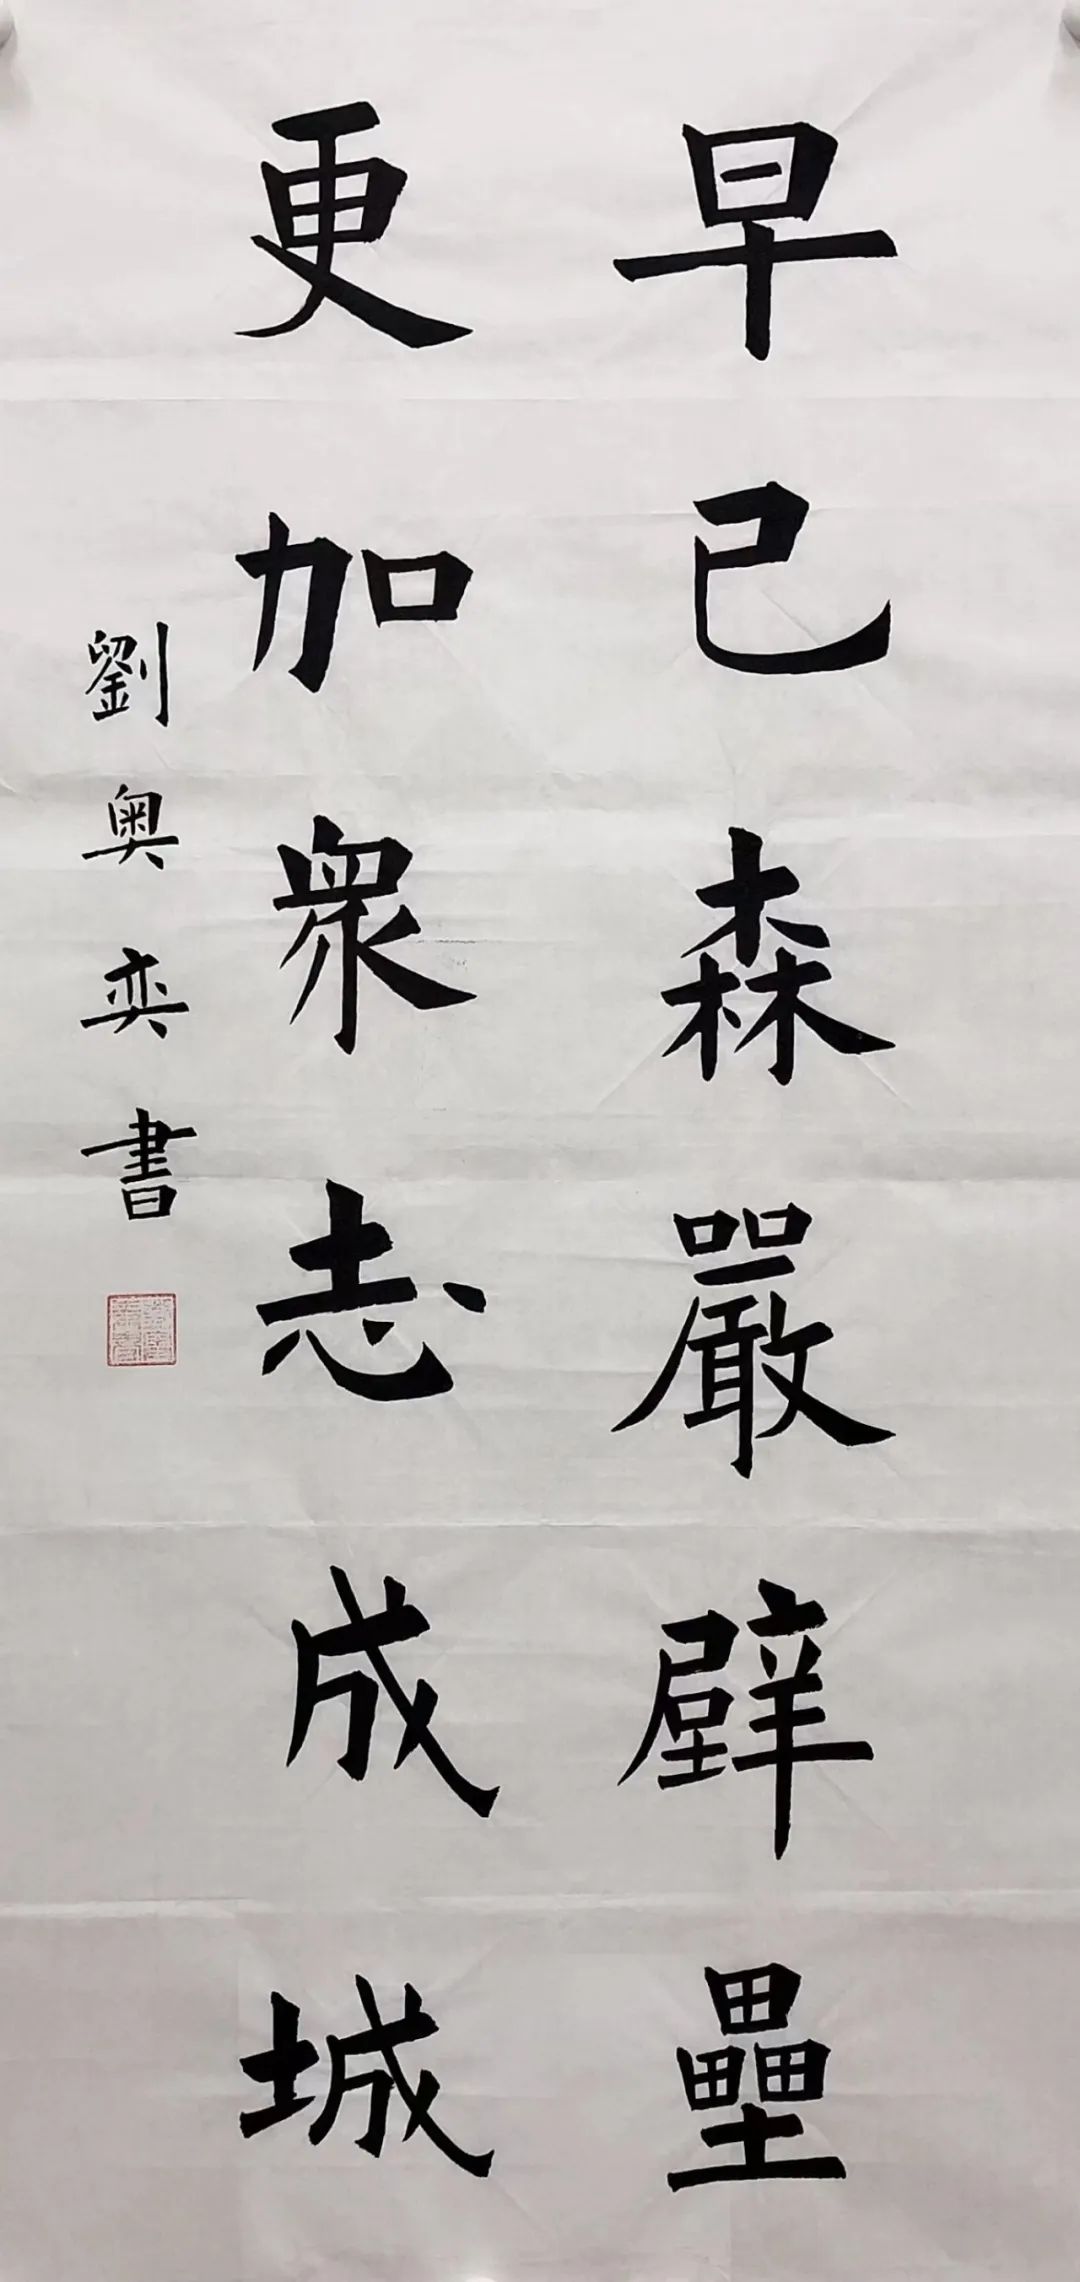 早已森嚴壁壘
更加衆志成城
劉奧奕書